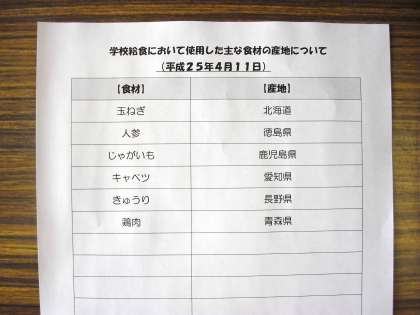 学校給食において使用した主な食材の産地について
(平成25年4月11日)
【食材】 【産地】
玉ねぎ 北海道
人参 徳島県
じゃがいも 鹿児島県
キャベツ 愛知県
きゅうり 長野県
鶏肉 青森県